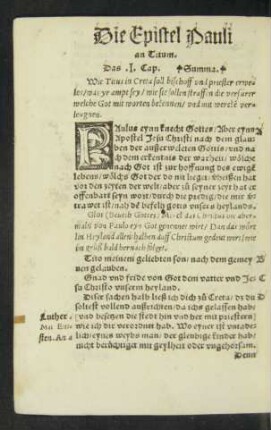 Die Epistel Pauli
an Titum.
Das .I. Cap. ✦Summa.✦
Wie Titus in Creta soll bischoff und priester erwe-
len/ was yr ampt sey/ wie sie sollen straffen die verfürer
welche Got mit worten bekennen/ und mit werckē ver-
leugnen.
PAulus eyn knecht Gottes/ Aber eyn
Apostel Jesu Christi nach dem glau
ben der ausserwelten Gottes/ und na
ch dem erkentnis der warheit/ wölche
nach Got ist zur hoffnung des ewigē
lebens/ wölchs Got der do nit lieget/
hat vor den zeyten der welt/ aber zu seyner zeyt hat er
offenbart seyn wort/ durch die predig/ die mir
vertrawet ist/ nach dē befelh gotis unsers heylands.
Glos
von Paula eyn Got genennet wirt/ Dan das wört
lin Heyland allenthalben auff Christum gedeut
im grüß bald hernoch folget.
Tito meinem geliebten son/ nach dem gemey
nen gelauben.
Gnad und fride von Got dem vatter und Jes
su Christo unsern heyland.
Diser sachen halb ließ ich dich zů Creta/ dz du
soltest vollend außrichten/ da ichs gelassen hab/
Luther. (und besetzen die stedt hin und her mit priestern)
Mit wie ich dir verordnet hab. Wo eyner ist untade-
lich/ eynes weybs man/ der glendige kinder hab/
nicht berüchtiget mit geylheit oder ungehorsam.
Denn